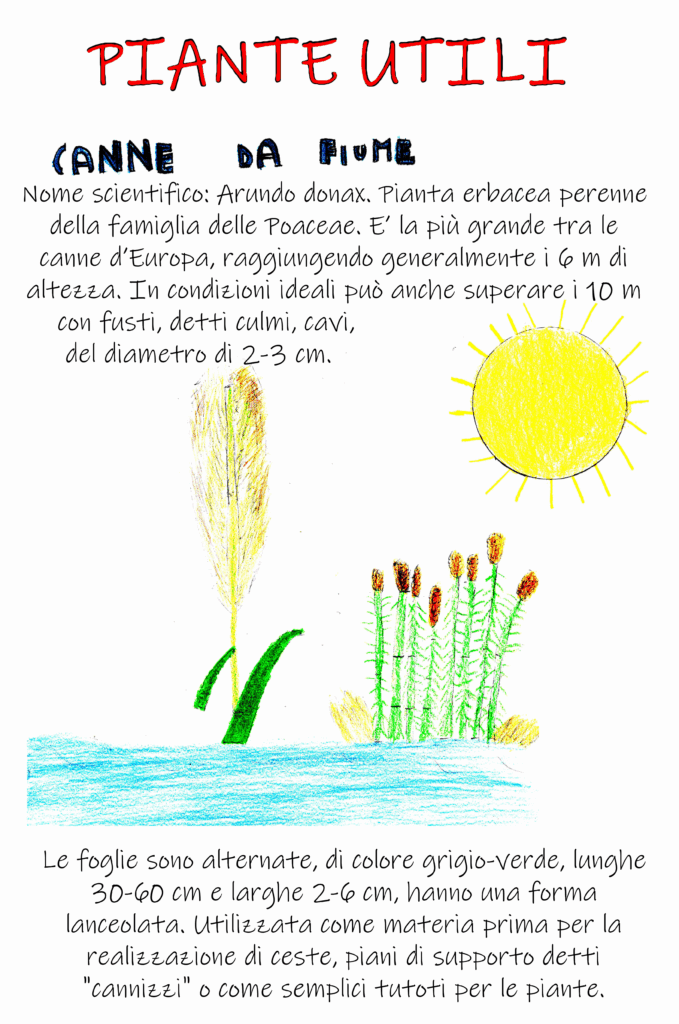 PIANTE UTILI
CANNE DA FIUME
Nome scientifico: Arundo donax. Pianta erbacea perenne
della famiglia delle Poaceae. E' la più grande tra le
canne d'Europa, raggiungendo generalmente i 6 m di
altezza. In condizioni ideali può anche superare i 10 m
con fusti, detti culmi, cavi,
del diametro di 2-3 cm.
Le foglie sono alternate, di colore grigio-verde, lunghe
30-60 cm e larghe 2-6 cm, hanno una forma
lanceolata. Utilizzata come materia prima per la
realizzazione di ceste, piani di supporto detti
"cannizzi" o come semplici tutoti per le piante.